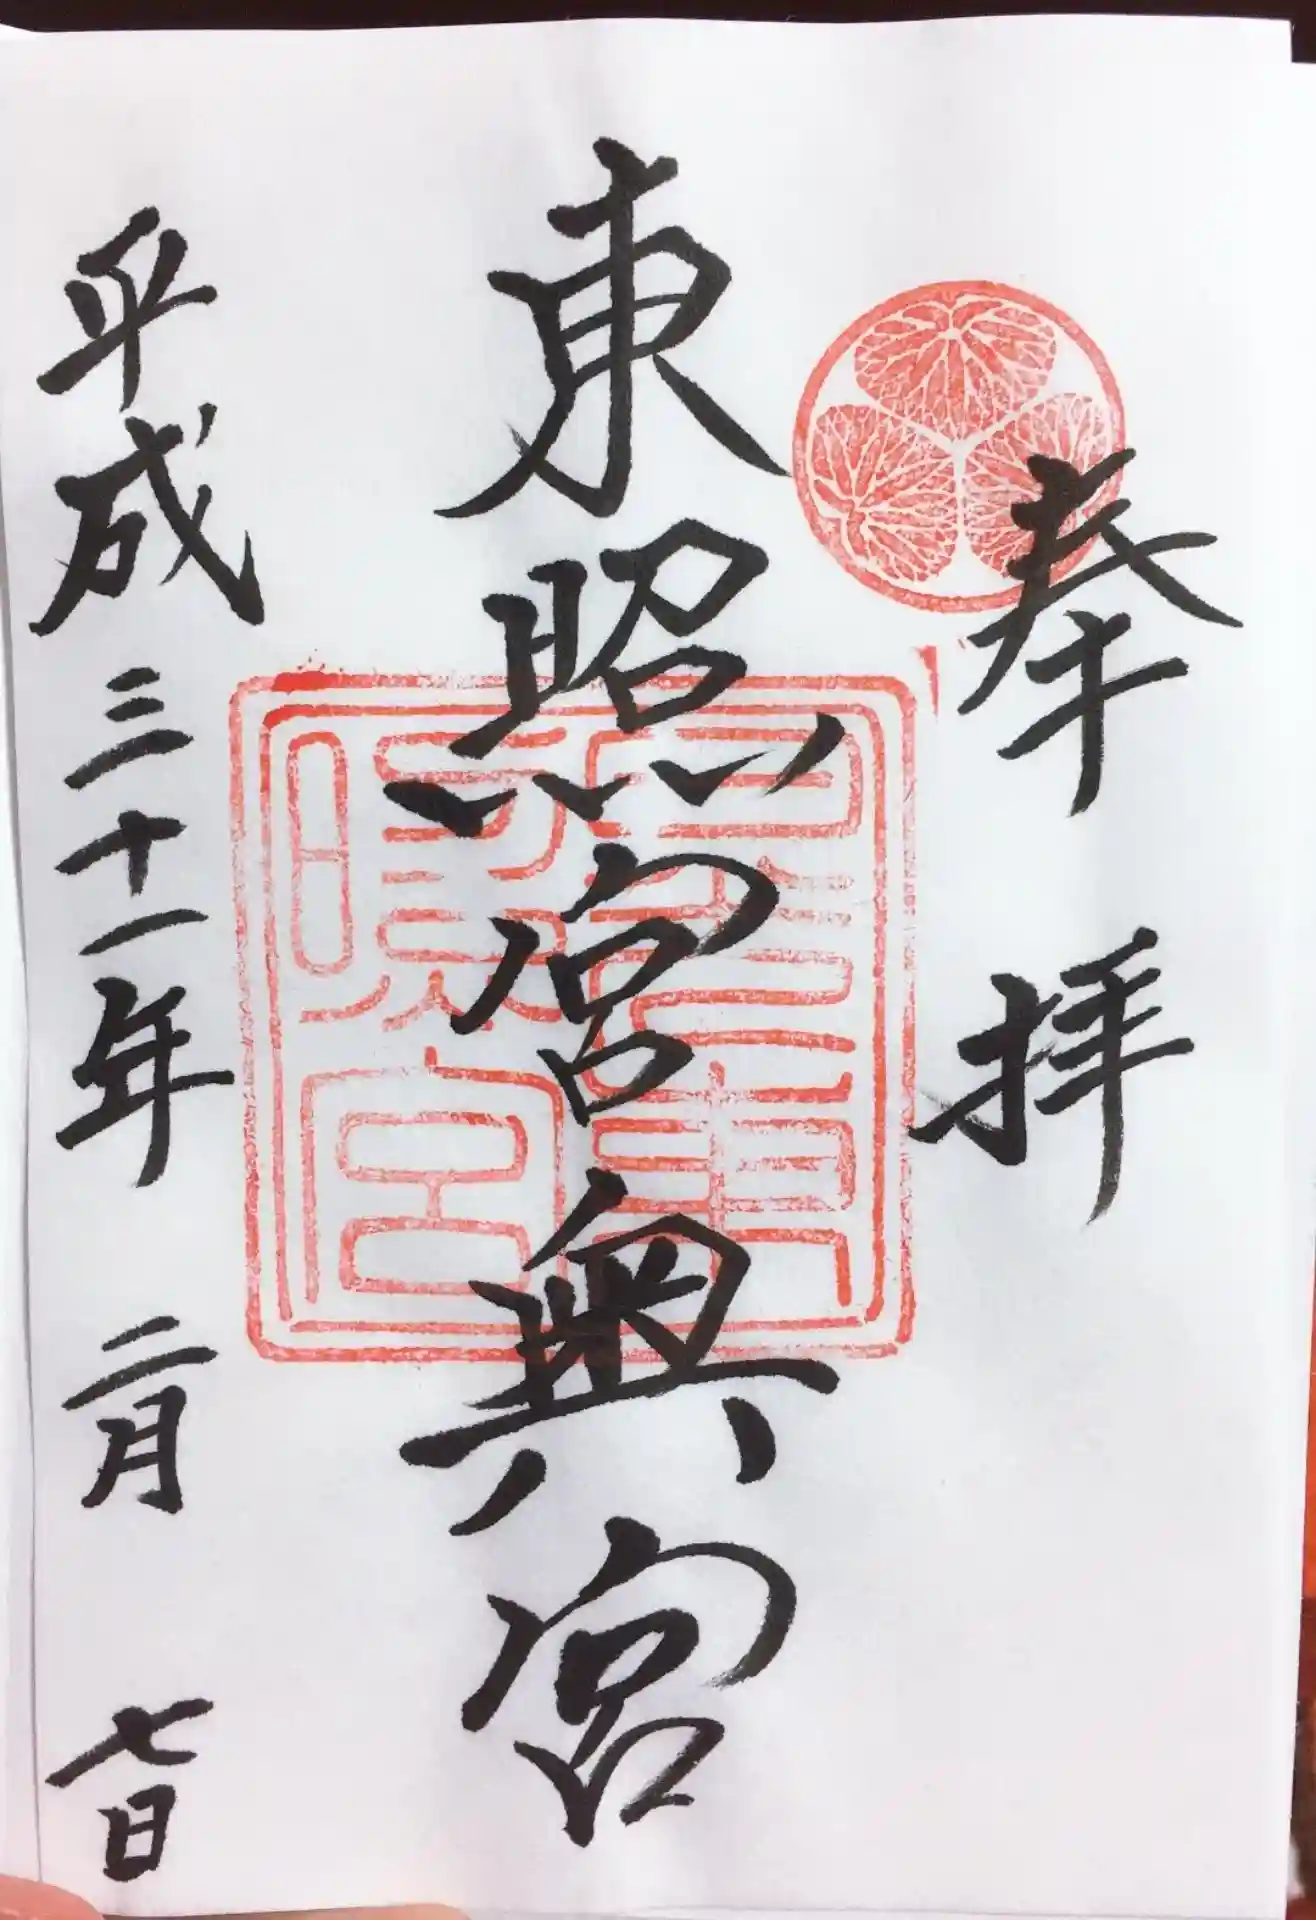 奉拝
東照宮興宮
平成三十一年二月七日